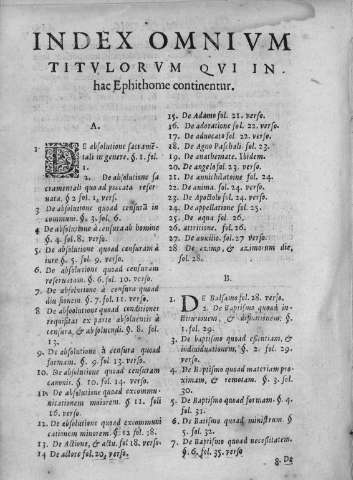 INDEX OMNIVM
TITVLORVM QVI IN
hac Ephithome continentur.
A.
1. DE absolutione sacramẽ-
tali in genere. §. 1. fol.
1.
2. De absolutione sa
cramentali quo ad peccata reser
uata, §. 2 fol. 1, verso.
3 De absolutione quoad censurã in
commun. §. 3. fol. 6.
4 De absolutione à censura ab homine
§. 4. fol. 8. verso.
5. De absolutione quoad censuram à
iure §. 5. fol. 9. verso.
6. De absolutione quoad censuram
reseruatam. §. 6. fol. 10. verso.
7. De absolutione à censura quoad
§. 7. fol. 11. verso.
8 De absolutione quoad conditiones
requisitas ex parte absoluentis à
censura, & absoluendi. §. 8. fol.
13.
9. De absolutione à censura quoad
formam. §. 9. fol. 13. verso.
10. De absolutione quoad censuram
canonis. §. 10. fol. 14. verso.
11. De absolutione quoad excommu-
nicationem maiorem. §. 11. foli
16. verso.
12. De absolutione quoad excommuni
cationem minorem. §. 12 fol. 38.
13. De Actione, & actu. fol 18. verso.
14 De actore fol. 20, verso.
15. De Adamo fol. 21. verso.
16. De adoratione fol. 22. verso.
17. De aduocato fol. 22. verso.
18. De Agno Paschali fol. 23.
19. De anathemate. Ibidem.
20. De angelo fol. 23. verso.
21. De annihilatione fol. 24.
22. De anima fol. 24. verso.
23. De Apostolo fol. 24. verso.
24. De appellatione fol. 25.
25. De aqua fol. 26.
26. attritione. fol. 26.
27. De auxilio. fol. 27 verso.
28 De azimo, & azimorum die,
fol. 28.
B.
1. DE Balsamo fol. 28. verso.
2. De Baptismo quoad in-
§.
1. fol. 29.
3. De baptismo quoad essentiam, &
indiuiduationem, §. 2. fol. 29.
verso.
4. De Baptismo quoad materiam pro
ximam, & remotam. §. 3. fol.
30.
5. De Baptismo quoad formam. §. 4.
fol. 31.
6. De Baptismo quoad ministrum §
5. fol. 32.
7. De Baptismo quoad necessitatem.
§. 6. fol. 35. verso
8. De